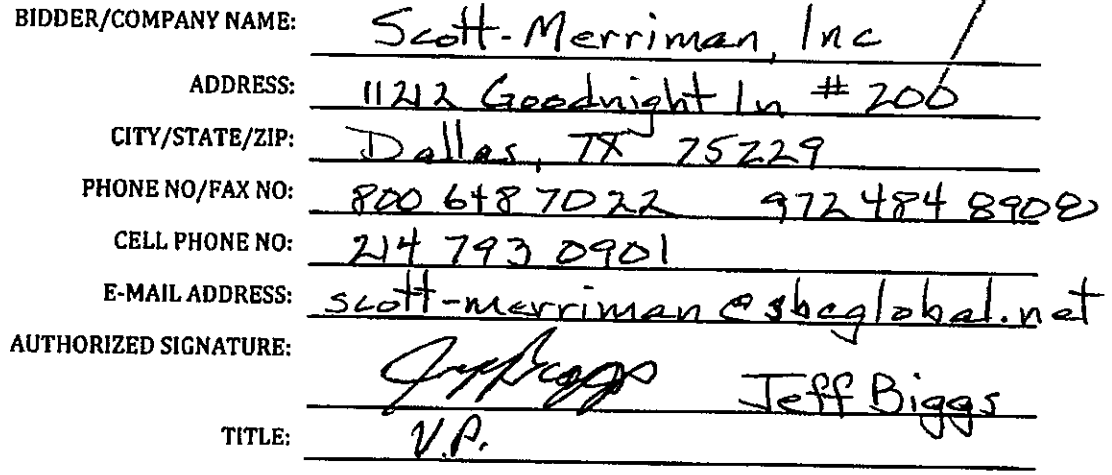 BIDDER/COMPANY NAME: Scott-Merriman, Inc
ADDRESS: 11212 Goodnight Ln # 206
CITY/STATE/ZIP: Dallas, TX 75229
PHONE NO/FAX NO: 800 648 7022 972 484 8908
CELL PHONE NO: 214 793 0901
E-MAIL ADDRESS: scott-merriman@sbcglobal.net
AUTHORIZED SIGNATURE: Jeff Biggs Jeff Biggs
TITLE: V.P.